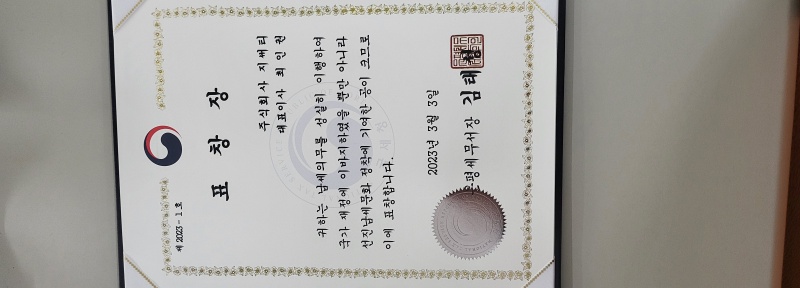 제 2023 - 1 호
표 창 장
주식회사 지써티
대표이사 최인권
귀하는 납세의무를 성실히 이행하여
국가 재정에 이바지하였을 뿐만 아니라
선진납세문화 정착에 기여한 공이 크므로
이에 표창합니다.
2023년 3월 3일
은평세무서장 김태